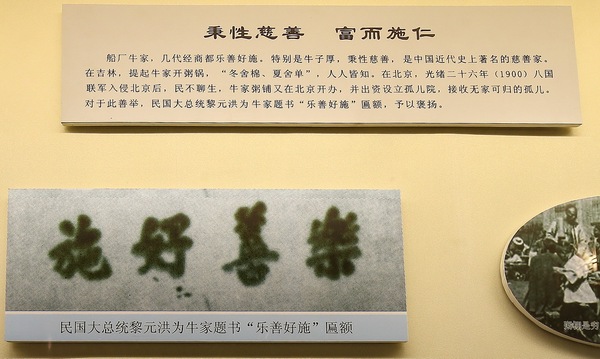 秉性慈善　富而施仁
船厂牛家，几代经商都乐善好施。特别是牛子厚，秉性慈善，是中国近代史上著名的慈善家。
在吉林，提起牛家开粥锅，“冬舍棉、夏舍单”，人人皆知。在北京，光绪二十六年（1900）八国
联军入侵北京后，民不聊生，牛家粥铺又在北京开办，并出资设立孤儿院，接收无家可归的孤儿。
对于此善举，民国大总统黎元洪为牛家题书“乐善好施”匾额，予以褒扬。
施好善樂
民国大总统黎元洪为牛家题书“乐善好施”匾额